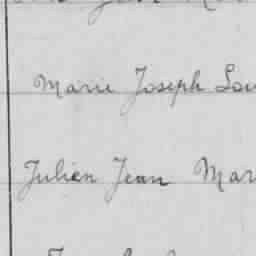 Marie Joseph Lou
Julien Jean Mar